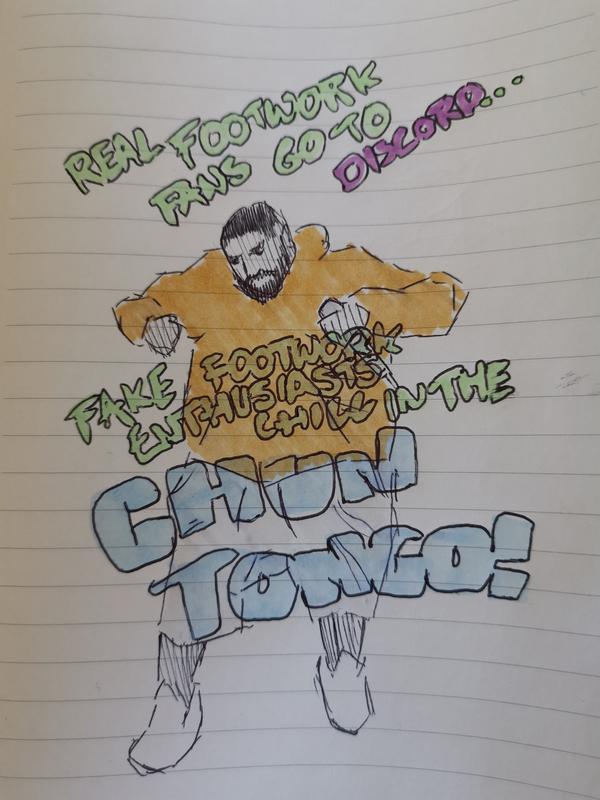 REAL FOOTWORK
FANS GO TO
DISCORD...
FAKE FOOTWORK
ENTHUSIASTS
CHILL IN THE
CHUN
TONGO!